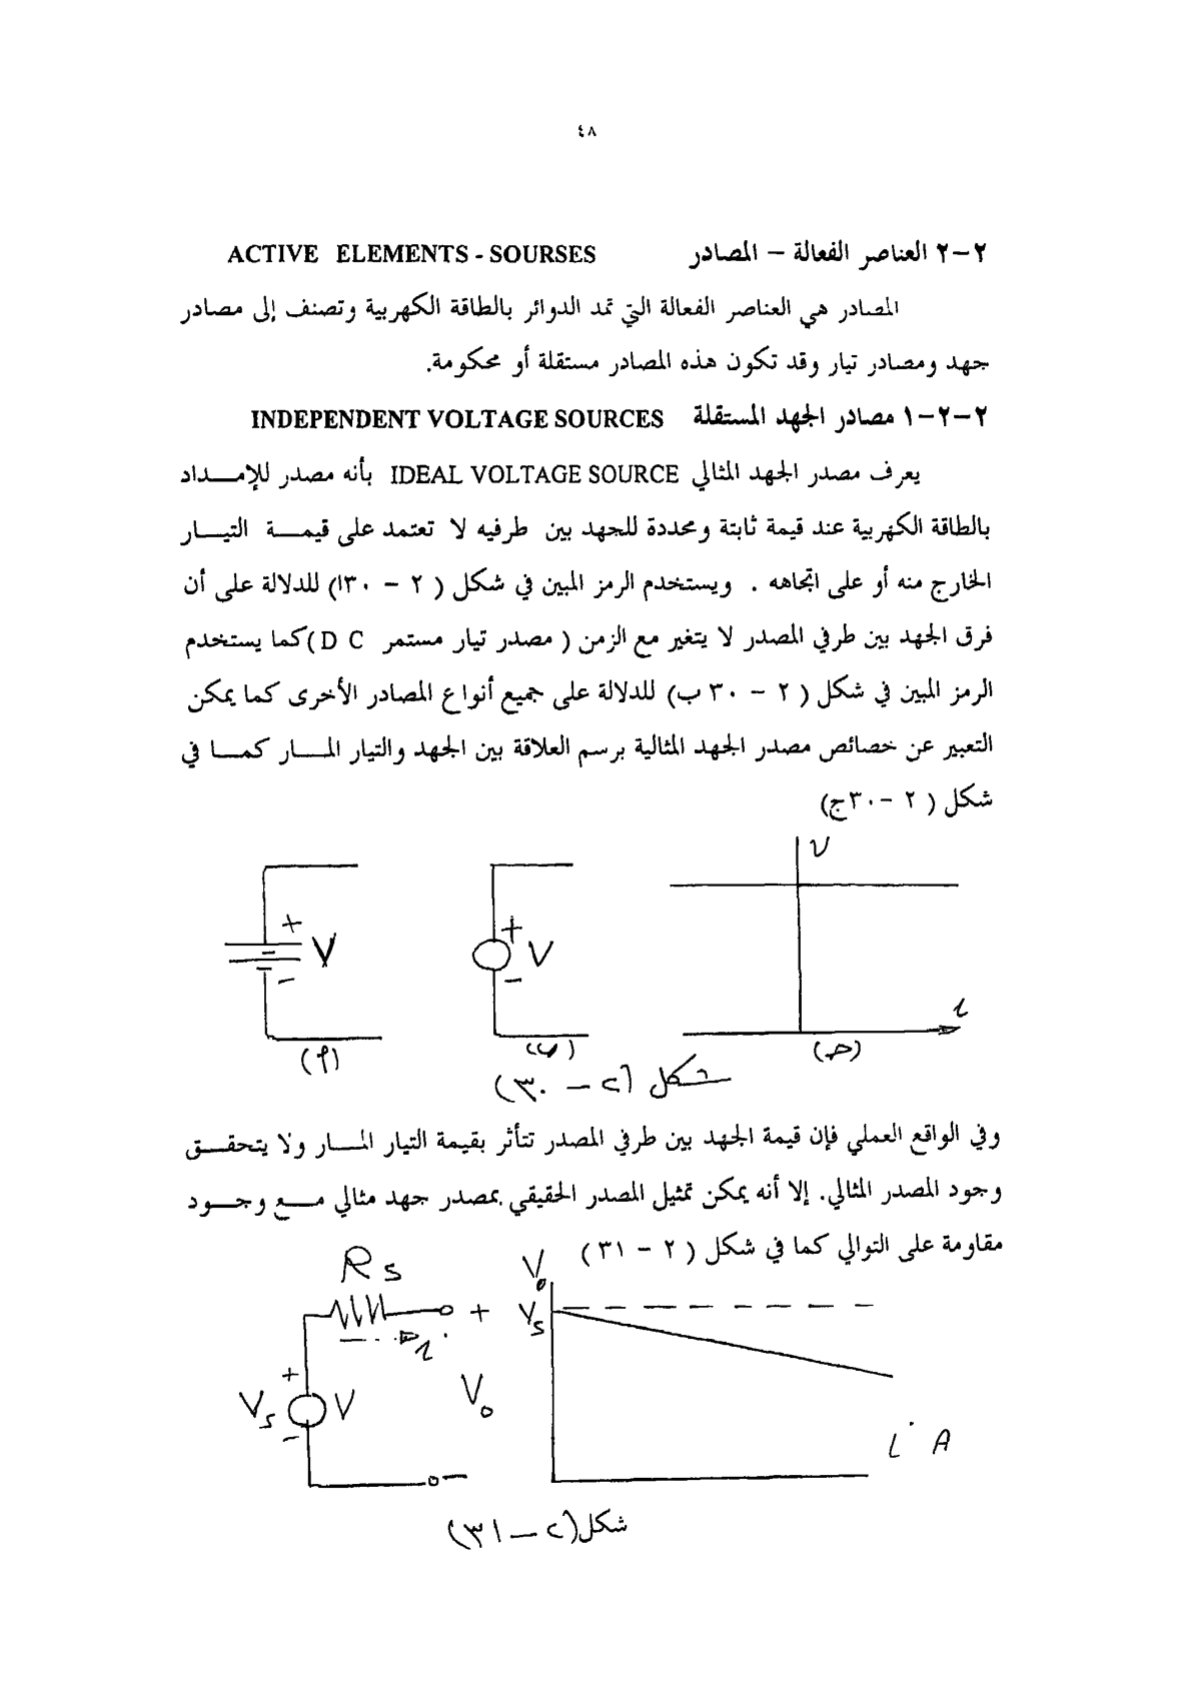 ٤٨
٢-٢ العناصر الفعالة – المصادر ACTIVE ELEMENTS - SOURSES
المصادر هي العناصر الفعالة التي تمد الدوائر بالطاقة الكهربية وتصنف إلى مصادر
جهد ومصادر تيار وقد تكون هذه المصادر مستقلة أو محكومة.
٢-٢-١ مصادر الجهد المستقلة INDEPENDENT VOLTAGE SOURCES
يعرف مصدر الجهد المثالي IDEAL VOLTAGE SOURCE بأنه مصدر للإمـــداد
بالطاقة الكهربية عند قيمة ثابتة ومحددة للجهد بين طرفيه لا تعتمد على قيمـــة التيـــار
الخارج منه أو على اتجاهه . ويستخدم الرمز المبين في شكل ( ٢ – ٣٠ا) للدلالة على أن
فرق الجهد بين طرفي المصدر لا يتغير مع الزمن ( مصدر تيار مستمر D C)كما يستخدم
الرمز المبين في شكل ( ٢ – ٣٠ ب) للدلالة على جميع أنواع المصادر الأخرى كما يمكن
التعبير عن خصائص مصدر الجهد المثالية برسم العلاقة بين الجهد والتيار المـــار كمـــا في
شكل ( ٢ -٣٠ج)
+ V -
+ V -
v
i
(أ)
(ب)
(جـ)
شكل (٢ – ٣٠)
وفي الواقع العملي فإن قيمة الجهد بين طرفي المصدر تتأثر بقيمة التيار المـــار ولا يتحقـــق
وجود المصدر المثالي. إلا أنه يمكن تمثيل المصدر الحقيقي بمصدر جهد مثالي مـــع وجـــود
مقاومة على التوالي كما في شكل ( ٢ – ٣١ )
Rs
+
i
+
Vs V
-
Vo
-
Vo
Vs
i A
شكل(٢ – ٣١)